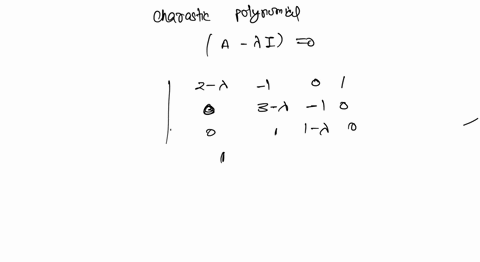 charastic polynomial
(A - λI) = 0
| 2-λ -1 0 1
0 3-λ -1 0
0 1 1-λ 0